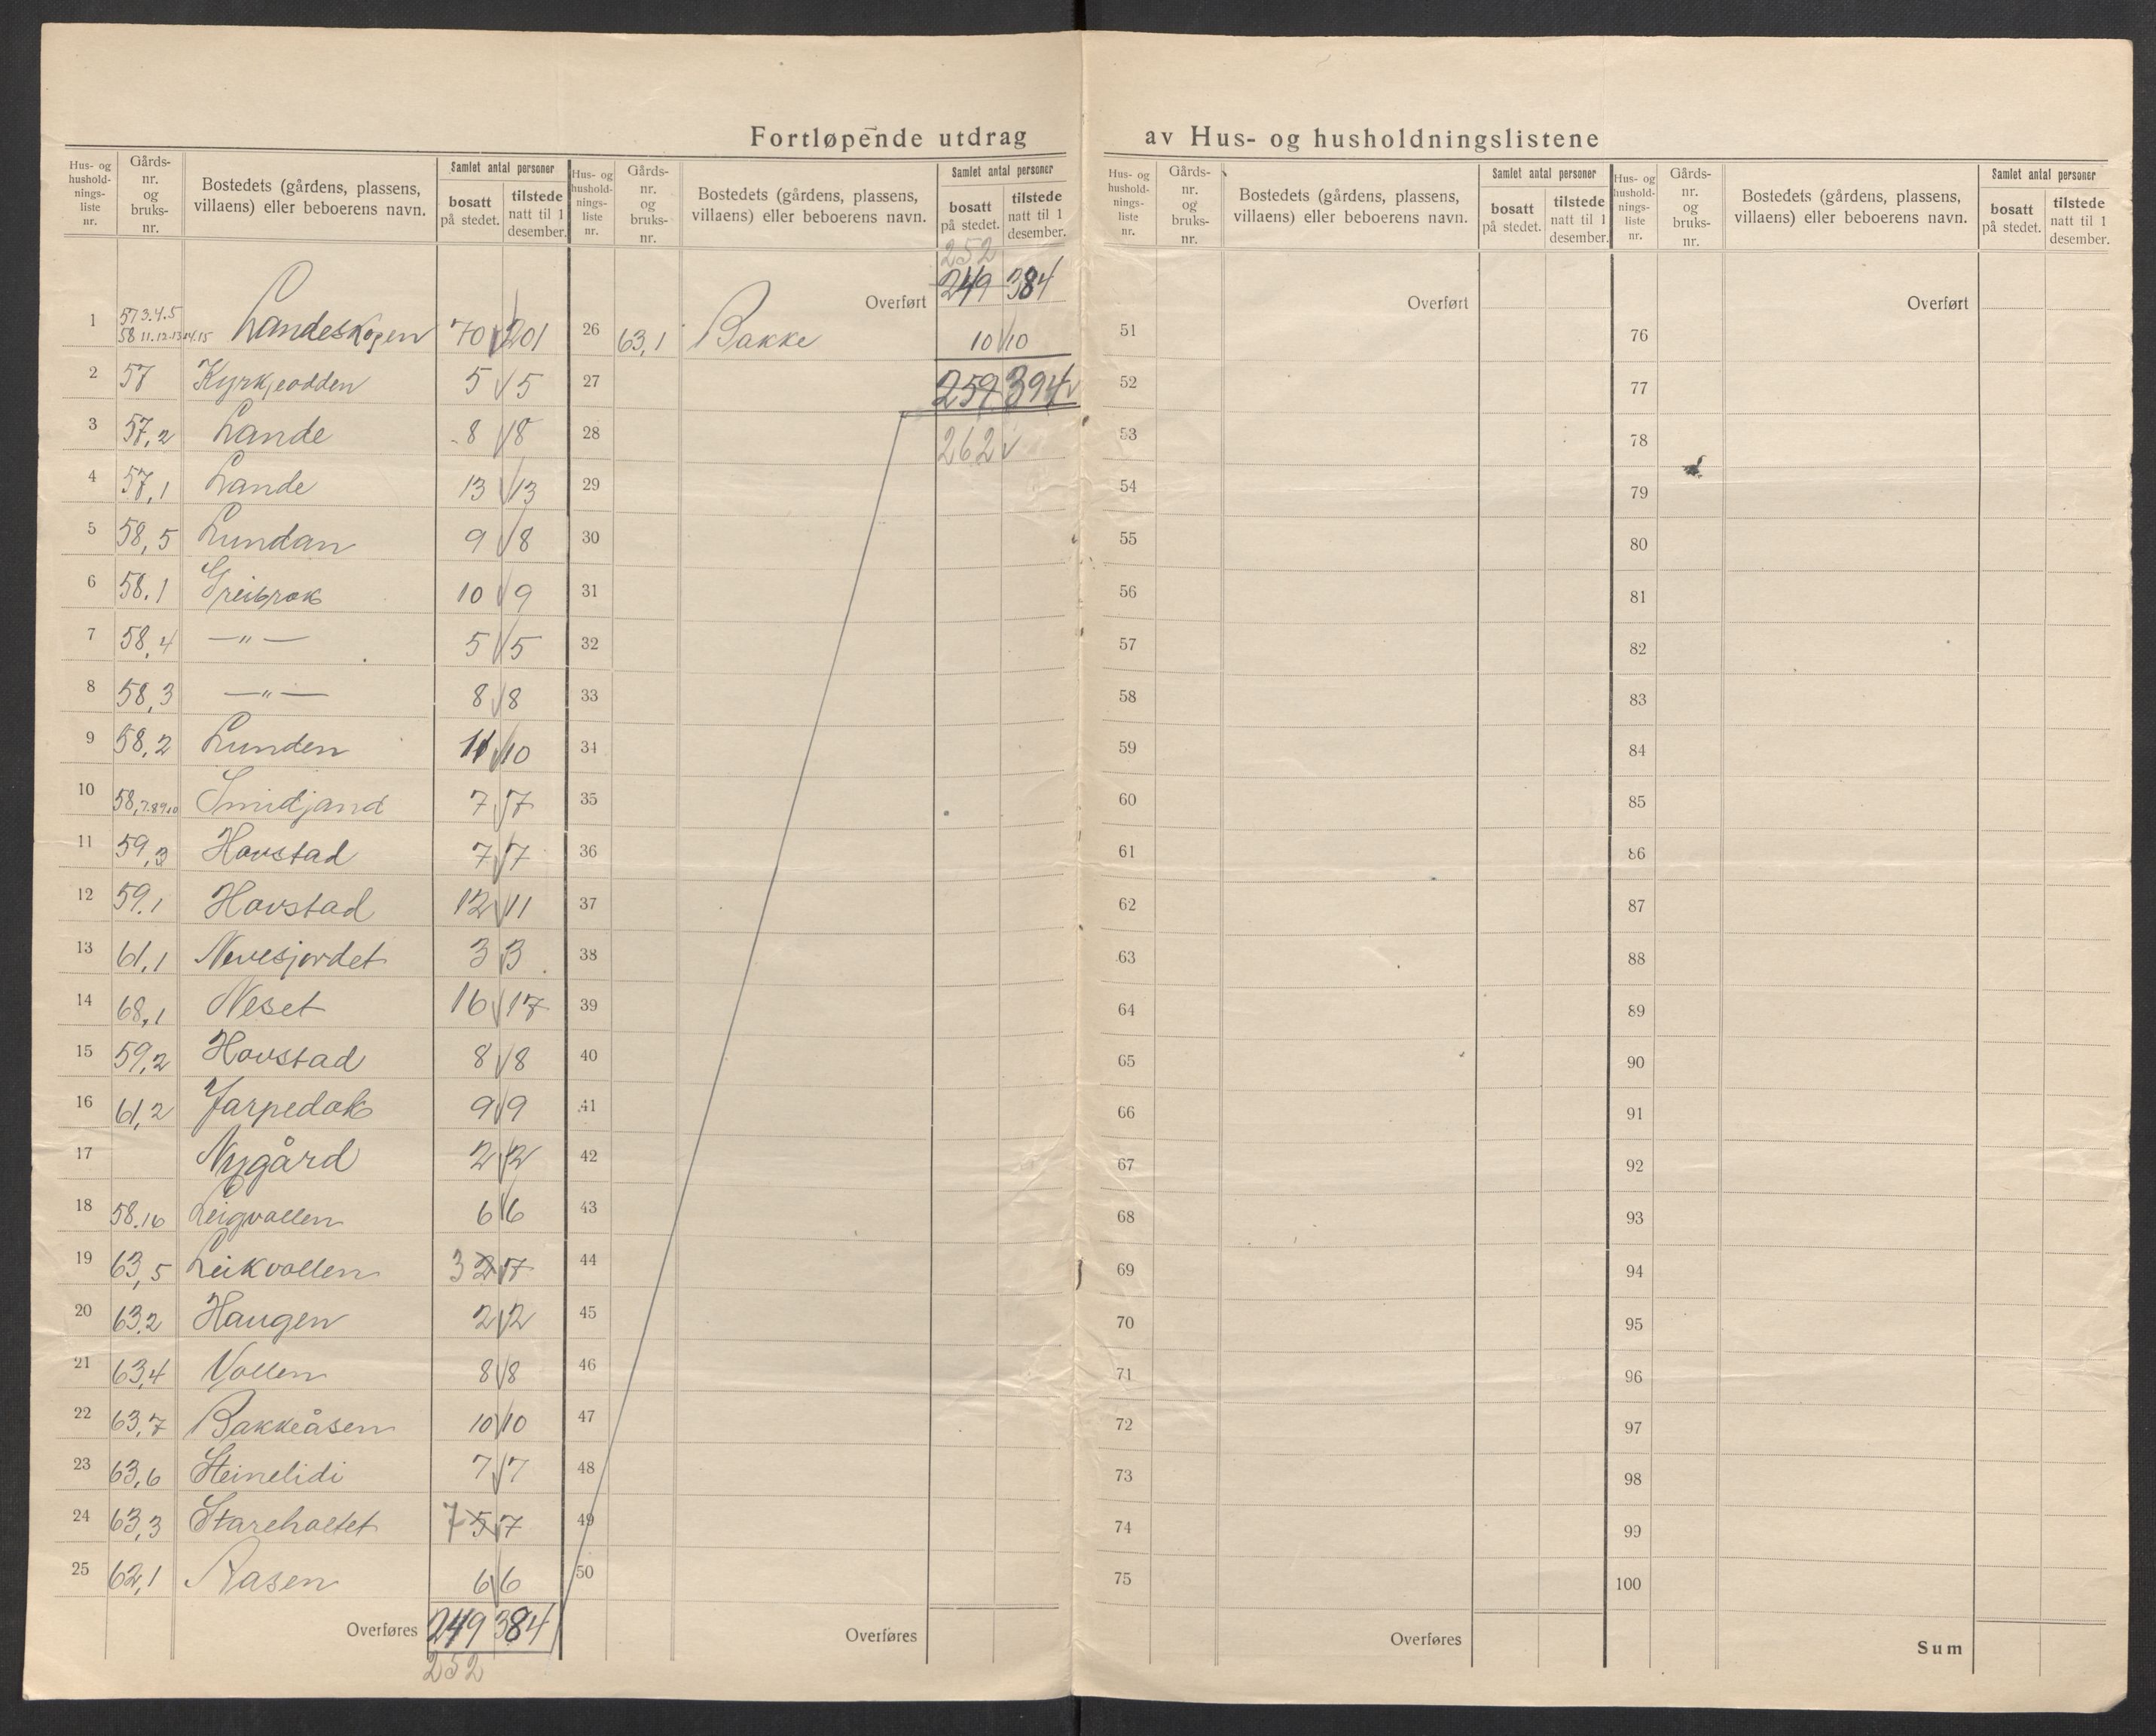 Fortløpende utdrag av Hus- og husholdningslistene
Hus- og hushold-nings-liste nr. | Gårds-nr. og bruks-nr. | Bostedets (gårdens, plassens, villaens) eller beboerens navn. | Samlet antal personer | bosatt på stedet. | tilstede natt til 1 desember.
1 57 3.4.5 58 11.12.13.14.15 Landeskogen 70 201
2 57 Kyrkjeodden 5 5
3 57,2 Lande 8 8
4 57,1 Lande 13 13
5 58,5 Lundan 9 8
6 58.1 Greibrok 10 9
7 58,4 —"— 5 5
8 58,3 —"— 8 8
9 58,2 Lunden 11 10
10 58,7.8.9.10 Smidjand 7 7
11 59,3 Hovstad 7 7
12 59.1 Hovstad 12 11
13 61,1 Nevesjordet 3 3
14 68,1 Neset 16 17
15 59,2 Hovstad 8 8
16 61,2 Jarpedok 9 9
17 Nygård 2 2
18 58.16 Leigvollen 6 6
19 63,5 Leikvollen 3 2 7
20 63.2 Haugen 2 2
21 63,4 Vollen 8 8
22 63,7 Bakkeåsen 10 10
23 63,6 Steinelidi 7 7
24 63,3 Stareholtet 7 5 7
25 62,1 Aasen 6 6
Overføres 249 384
252
Hus- og hushold-nings-liste nr. | Gårds-nr. og bruks-nr. | Bostedets (gårdens, plassens, villaens) eller beboerens navn. | Samlet antal personer | bosatt på stedet. | tilstede natt til 1 desember.
252
Overført 249 384
26 63,1 Bakke 10 10
27 259 394
28 262
29
30
31
32
33
34
35
36
37
38
39
40
41
42
43
44
45
46
47
48
49
50
Overføres
Hus- og hushold-nings-liste nr. | Gårds-nr. og bruks-nr. | Bostedets (gårdens, plassens, villaens) eller beboerens navn. | Samlet antal personer | bosatt på stedet. | tilstede natt til 1 desember.
Overført
51
52
53
54
55
56
57
58
59
60
61
62
63
64
65
66
67
68
69
70
71
72
73
74
75
Overføres
Hus- og hushold-nings-liste nr. | Gårds-nr. og bruks-nr. | Bostedets (gårdens, plassens, villaens) eller beboerens navn. | Samlet antal personer | bosatt på stedet. | tilstede natt til 1 desember.
Overført
76
77
78
79
80
81
82
83
84
85
86
87
88
89
90
91
92
93
94
95
96
97
98
99
100
Sum